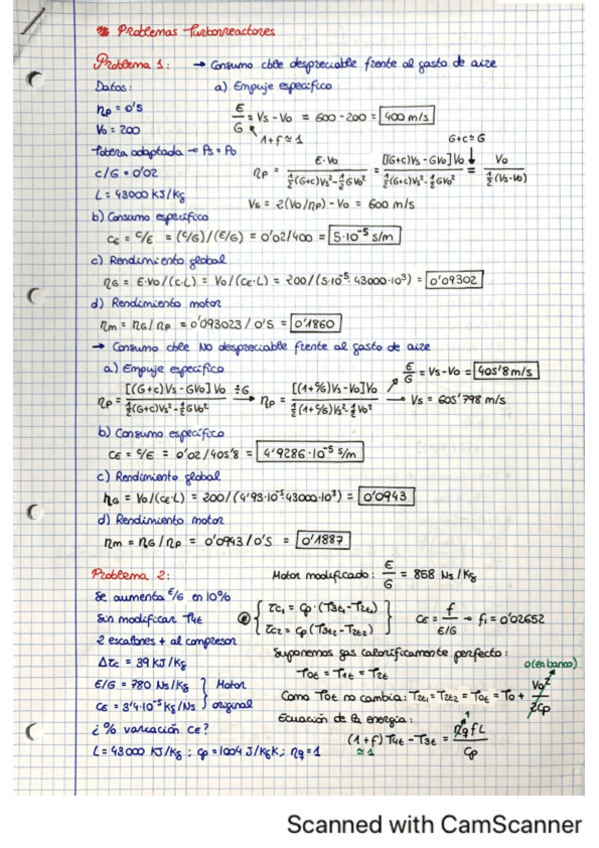 Problemas Turborreactores
Problema 1: → Consumo cble despreciable frente al gasto de aire
Datos: a) Empuje específico
ηp = 0'5
V0 = 200
E/G = Vs - V0 = 600 - 200 = 400 m/s
1+f ≈ 1
G+c ≈ G
Tobera adaptada → Ps = P0
ηp = E·V0 / (½(G+c)Vs² - ½GV0²) = [(G+c)Vs - GV0]V0 / (½(G+c)Vs² - ½GV0²) = V0 / (½(Vs-V0))
c/G = 0'02
L = 43000 KJ/Kg
Vs = 2(V0/ηp) - V0 = 600 m/s
b) Consumo específico
CE = c/E = (c/G)/(E/G) = 0'02/400 = 5·10⁻⁵ s/m
c) Rendimiento global
ηG = E·V0/(c·L) = V0/(CE·L) = 200/(5·10⁻⁵·43000·10³) = 0'09302
d) Rendimiento motor
ηm = ηG/ηp = 0'093023/0'5 = 0'1860
→ Consumo cble No despreciable frente al gasto de aire
a) Empuje específico
E/G = Vs - V0 = 405'8 m/s
ηp = [(G+c)Vs - GV0]V0 / (½(G+c)Vs² - ½GV0²) ÷G → ηp = [(1+c/G)Vs - V0]V0 / (½(1+c/G)Vs² - ½V0²) → Vs = 605'798 m/s
b) Consumo específico
CE = c/E = 0'02/405'8 = 4'9286·10⁻⁵ s/m
c) Rendimiento global
ηG = V0/(CE·L) = 200/(4'93·10⁻⁵·43000·10³) = 0'0943
d) Rendimiento motor
ηm = ηG/ηp = 0'0943/0'5 = 0'1887
Problema 2:
Motor modificado: E/G = 858 Ns/Kg
Se aumenta E/G en 10%
Sin modificar T4t
2 escalones + al compresor
Δτc = 39 KJ/Kg
E/G = 780 Ns/Kg
CE = 3'4·10⁻⁵ Kg/Ns
Motor original
¿% variación CE?
L = 43000 KJ/Kg; cp = 1004 J/KgK; ηq = 1
τc1 = cp·(T3t1 - T2t1)
τc2 = cp(T3t2 - T2t2)
CE = f / (E/G) → f1 = 0'02652
Suponemos gas calorificamente perfecto:
T0t = T1t = T2t
0 (en banco)
Como T0t no cambia: T2t1 = T2t2 = T0t = T0 + V0²/2cp
Ecuación de la energía:
(1+f) T4t - T3t = ηq f L / cp
≈ 1
1
Scanned with CamScanner